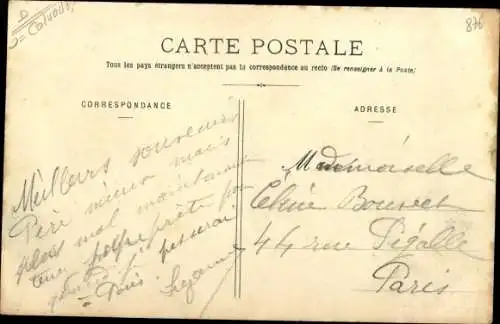 D = Calvados
876
CARTE POSTALE
Tous les pays étrangers n'acceptent pas la correspondance au recto (Se renseigner à la Poste)
CORRESPONDANCE
ADRESSE
Meilleurs souvenirs
Père mieux mais
plus mal maintenant
passerai
à Paris. Suzanne
Mademoiselle
Céline Bouvret
44 rue Pigalle
Paris